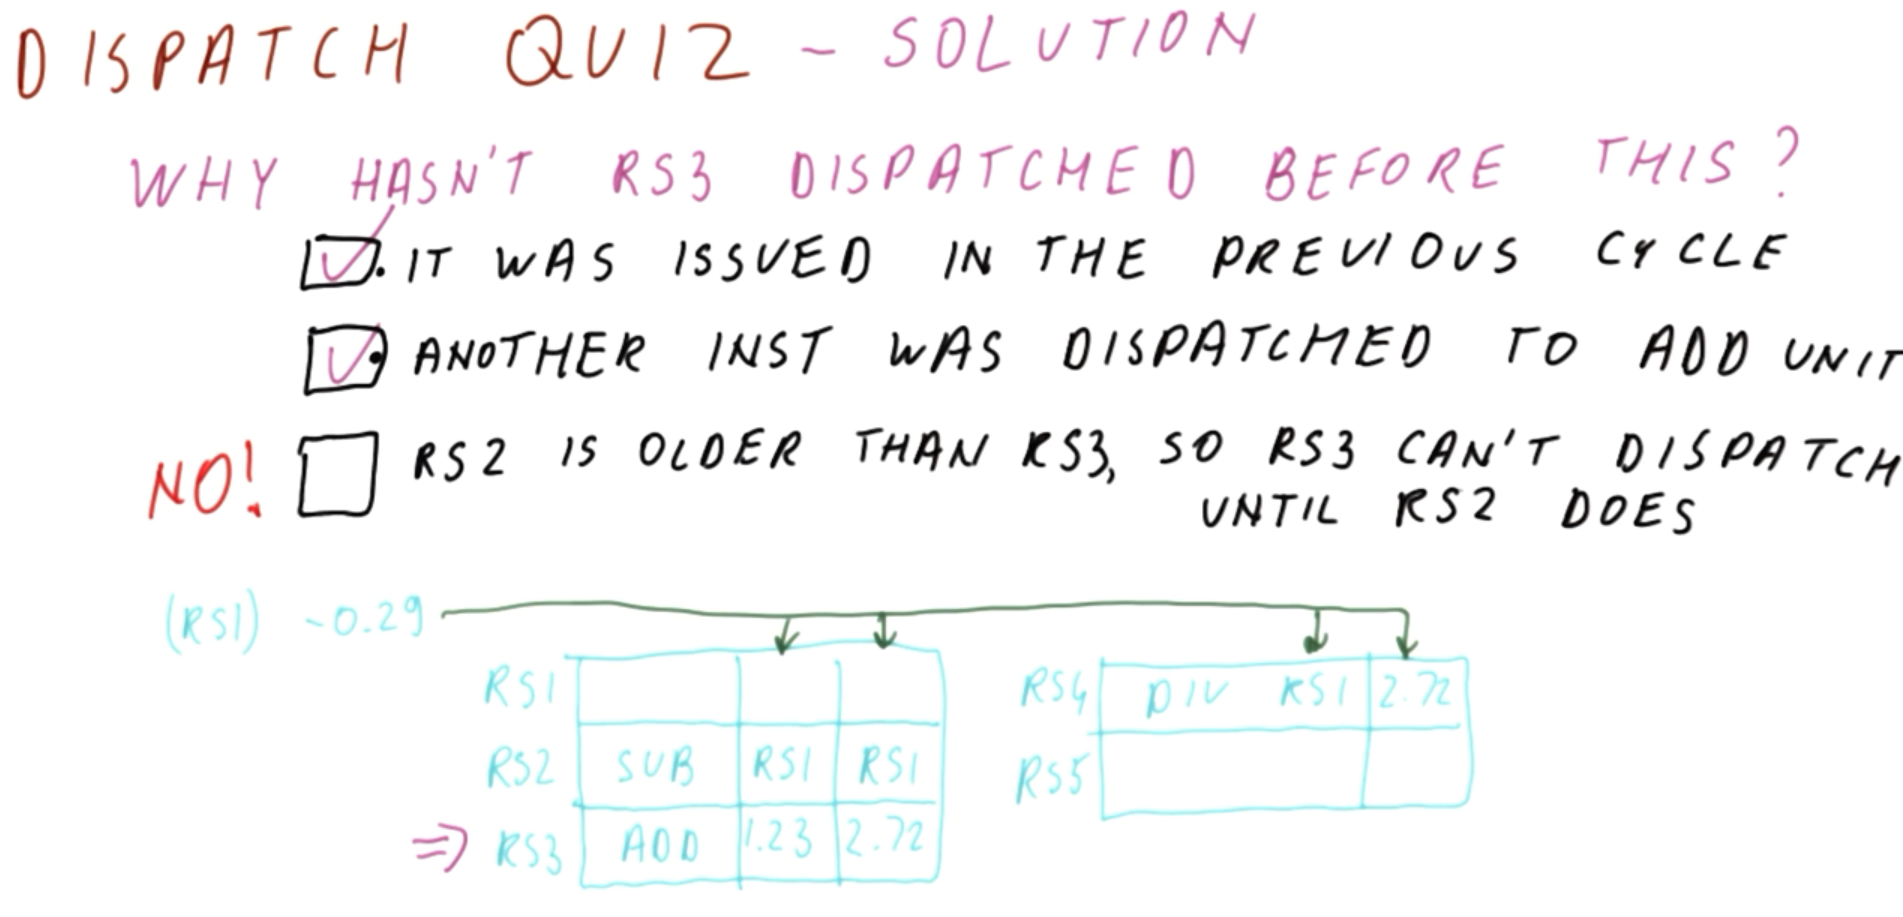 DISPATCH QUIZ - SOLUTION
WHY HASN'T RS3 DISPATCHED BEFORE THIS?
IT WAS ISSUED IN THE PREVIOUS CYCLE
ANOTHER INST WAS DISPATCHED TO ADD UNIT
NO! RS2 IS OLDER THAN RS3, SO RS3 CAN'T DISPATCH
UNTIL RS2 DOES
(RS1) -0.29
RS1 RS4 DIV RS1 2.72
RS2 SUB RS1 RS1 RS5
=> RS3 ADD 1.23 2.72